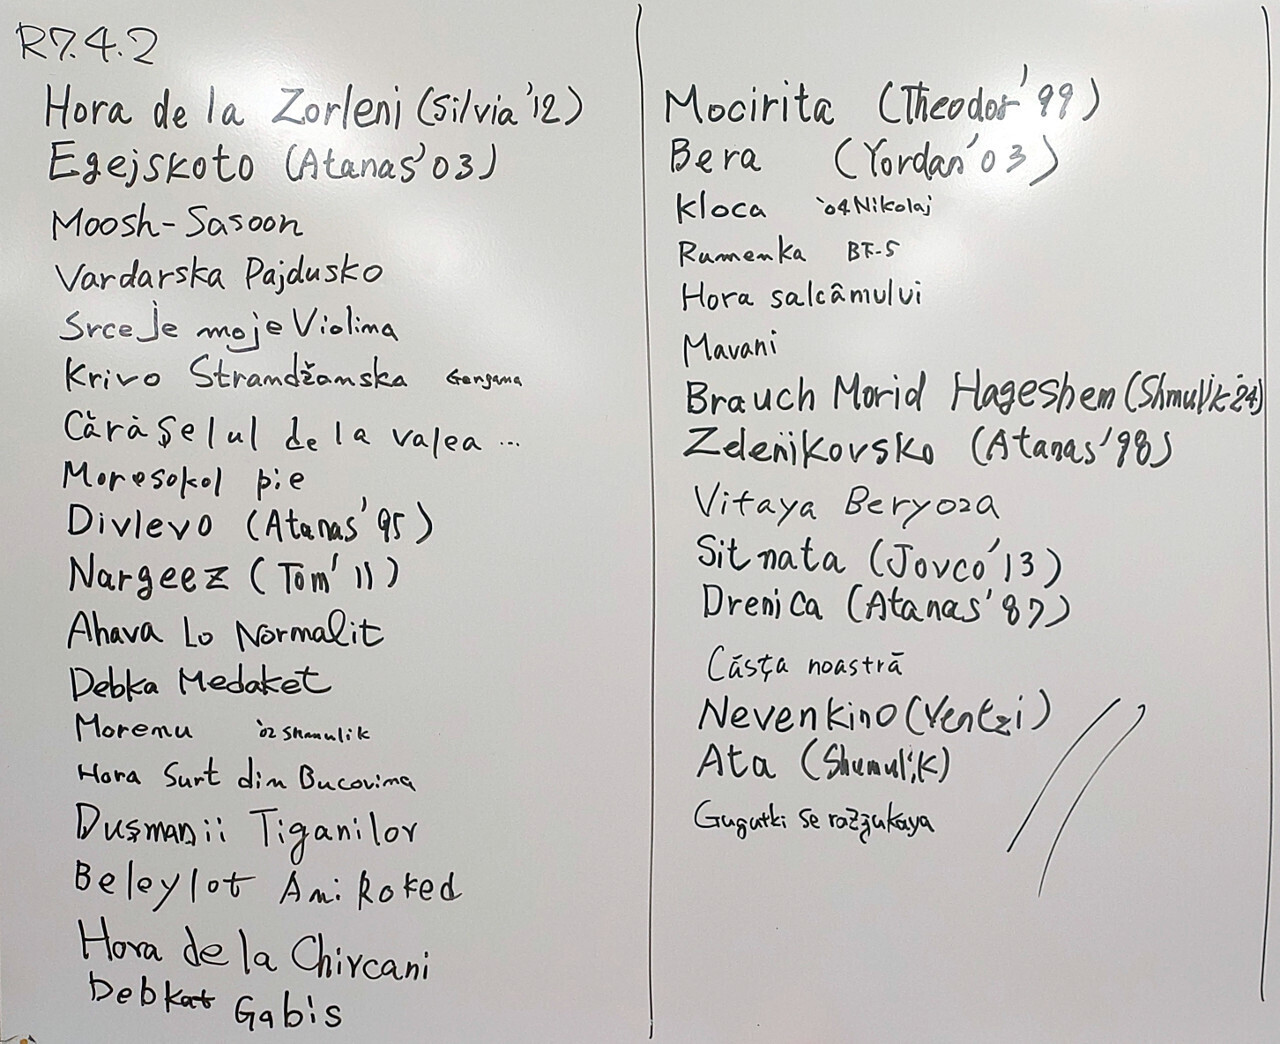 R7.4.2
Hora de la Zorleni (Silvia '12)
Egejskoto (Atanas '03)
Moosh-Sasoon
Vardarska Pajdusko
Srce Je moje Violina
Krivo Strandžanska Gergana
Cărăşelul de la valea ...
More sokol pie
Divlevo (Atanas '95)
Nargeez (Tom '11)
Ahava Lo Normalit
Debka Medaket
Morenu '02 Shmulik
Hora Surt din Bucovina
Duşmanii Tiganilor
Beleylot Ani Roked
Hora de la Chircani
Debkat Gabis
Mocirita (Theodor '99)
Bera (Yordan '03)
Kloca '04 Nikolaj
Rumenka BT-5
Hora salcâmului
Mavani
Brauch Morid Hageshem (Shmulik '24)
Zelenikovsko (Atanas '98)
Vitaya Beryoza
Sitnata (Jovco '13)
Drenica (Atanas '87)
Căsţa noastră
Nevenkino (Ventzi)
Ata (Shumulik)
Gugutki se razgukaya